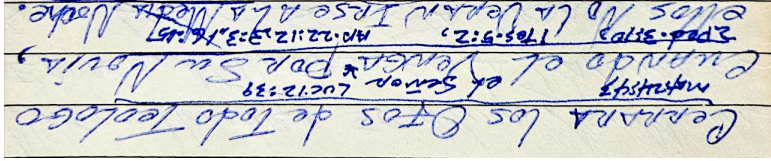 CERRARA los OJOS de Todo TEOLOGO
MAT 24:43 el Señor LUC 12:39
Cuando el VENGA POR Su Novia,
2 Ped. 3:10, 1 Tes. 5:2, AP. 22:12, 3:3, 16:15
ellos No LA VERAN IRSE A LA Media Noche.